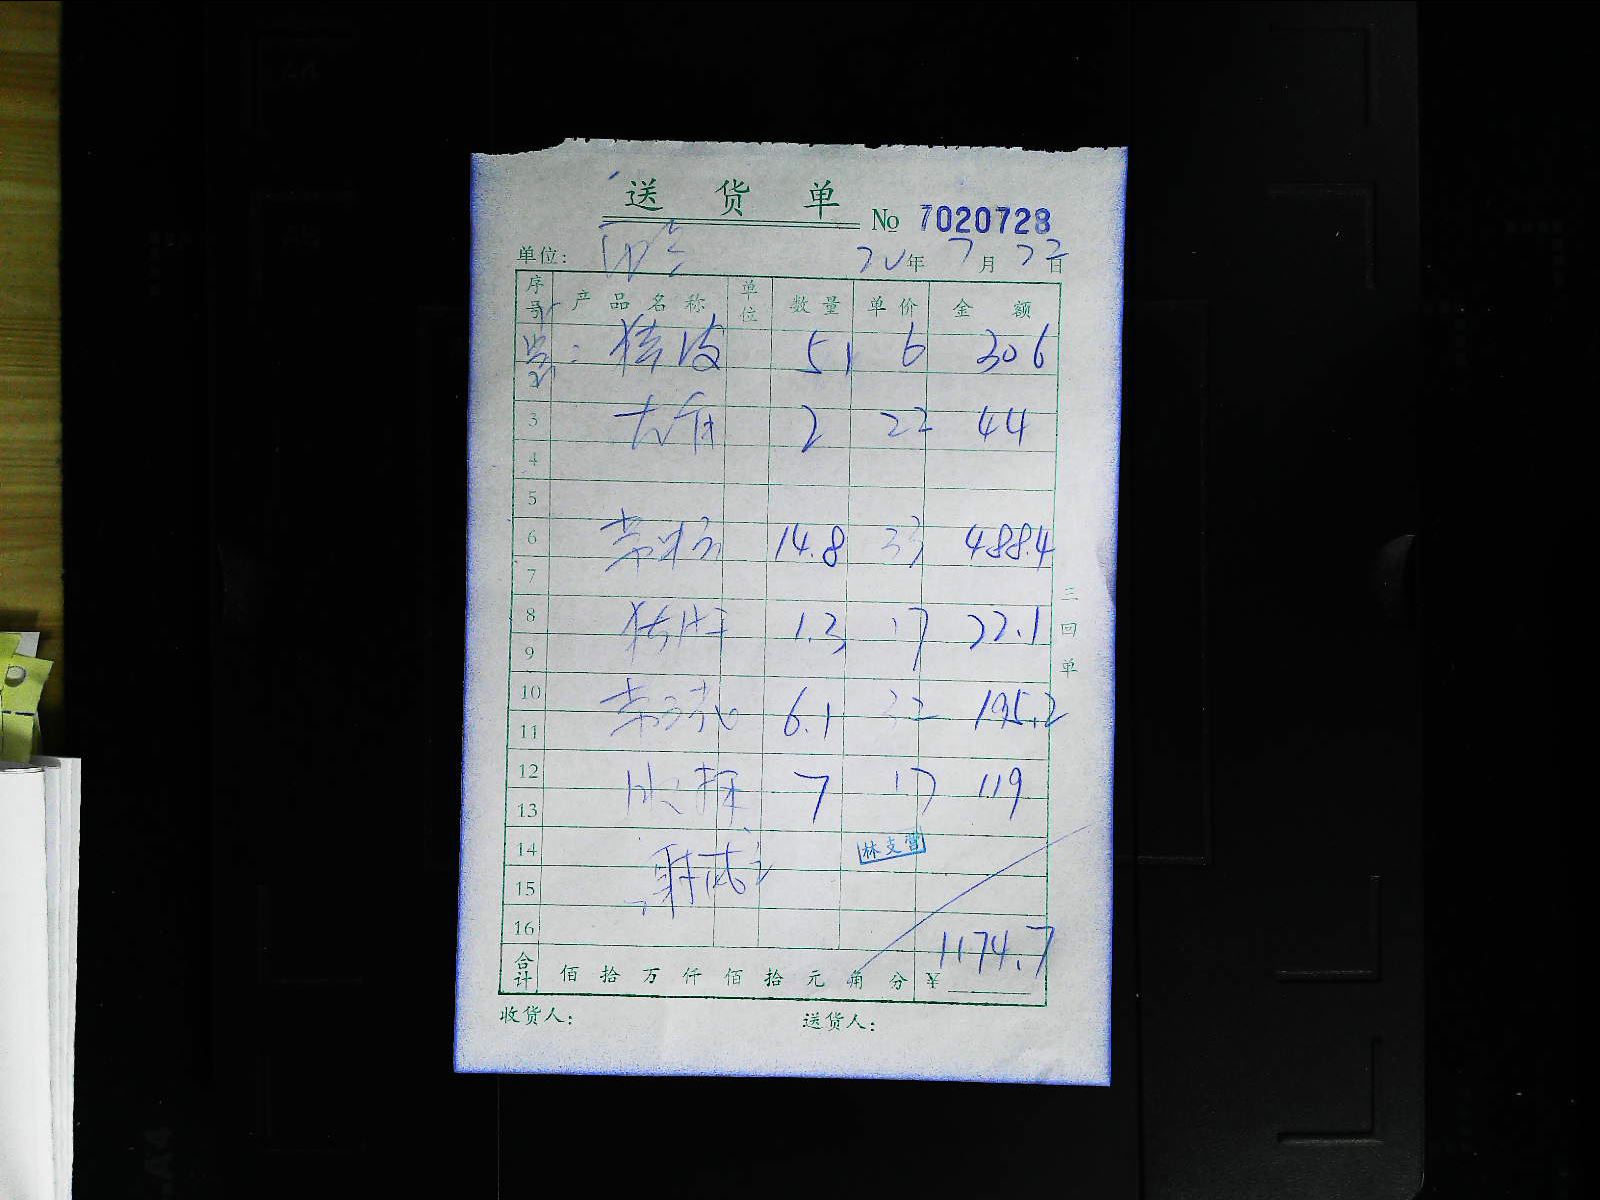 送货单 No 7020728
单位： 20年7月22日
序号 产品名称 单位 数量 单价 金额
猪皮 51 6 306
3 2 22 44
4
5
6 14.8 33 488.4
7
8 猪肝 1.3 17 22.1
9
10 6.1 32 195.2
11
12 7 17 119
13
14 林支营
15
16 1174.7
合计 佰拾万仟佰拾元角分 ￥
收货人： 送货人：
三回单